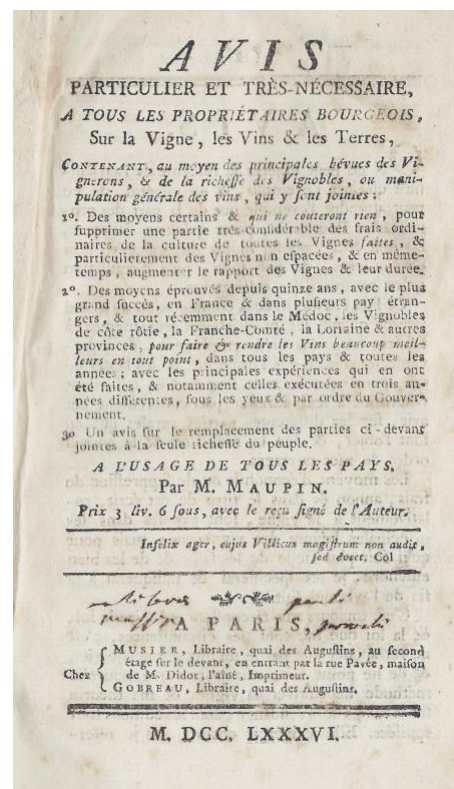 AVIS
PARTICULIER ET TRÈS-NÉCESSAIRE,
A TOUS LES PROPRIÉTAIRES BOURGEOIS,
Sur la Vigne, les Vins & les Terres,
CONTENANT, au moyen des principales bévues des Vi-
gnerons, & de la richesse des Vignobles, ou mani-
pulation générale des vins, qui y sont jointes :
1º. Des moyens certains & qui ne couteront rien, pour
supprimer une partie très-considérable des frais ordi-
naires de la culture de toutes les Vignes faites, &
particulierement des Vignes non espacées, & en même-
temps, augmenter le rapport des Vignes & leur durée.
2º. Des moyens éprouvés depuis quinze ans, avec le plus
grand succès, en France & dans plusieurs pays étran-
gers, & tout récemment dans le Médoc, les Vignobles
de côte rôtie, la Franche-Comté, la Lorraine & autres
provinces, pour faire & rendre les Vins beaucoup meil-
leurs en tout point, dans tous les pays & toutes les
années ; avec les principales expériences qui en ont
été faites, & notamment celles exécutées en trois an-
nées différentes, sous les yeux & par ordre du Gouver-
nement.
3º Un avis sur le remplacement des parties ci-devant
jointes à la seule richesse du peuple.
A L'USAGE DE TOUS LES PAYS.
Par M. MAUPIN.
Prix 3 liv. 6 sous, avec le reçu signé de l'Auteur.
Infelix ager, cujus Villicus magistrum non audit,
sed docet. Col
A PARIS,
Chez
MUSIER, Libraire, quai des Augustins, au second
étage sur le devant, en entrant par la rue Pavée, maison
de M. Didot, l'aîné, Imprimeur.
GOBREAU, Libraire, quai des Augustins.
M. DCC. LXXXVI.